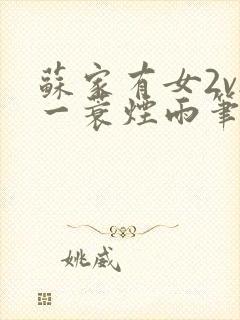 蘇家有女2v
一蓑煙雨筆
姚威